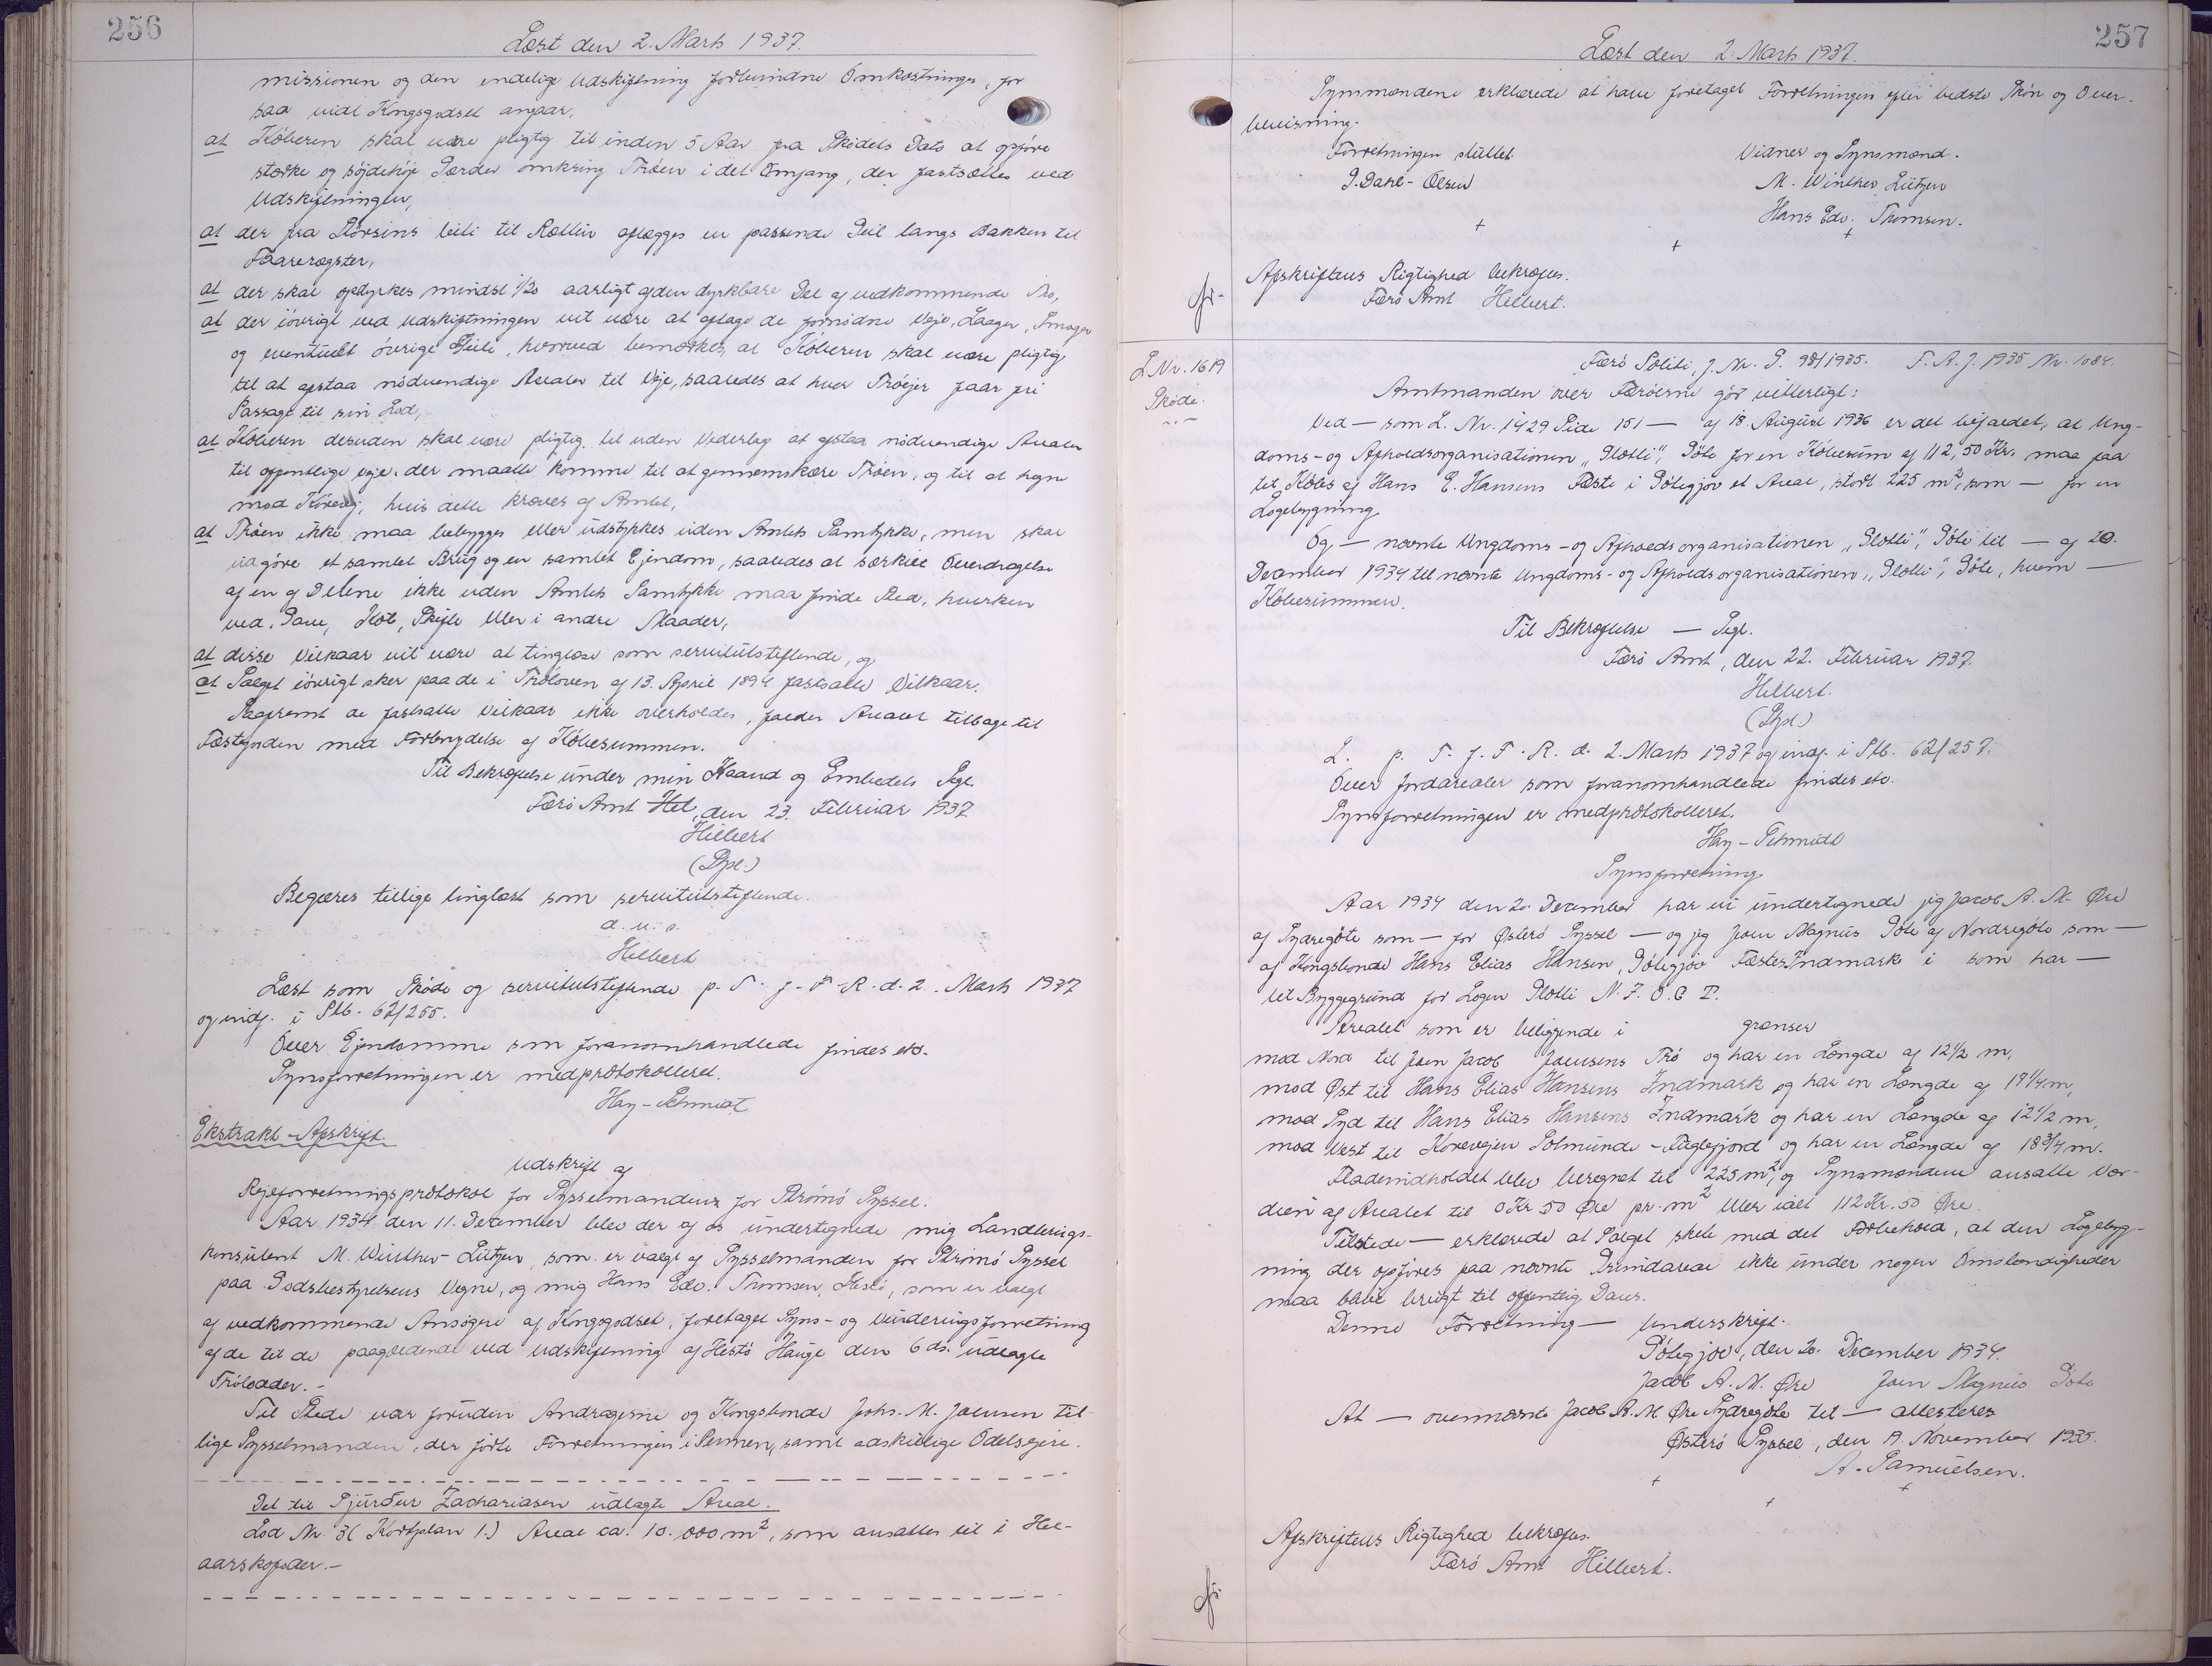 256
Læst den 2. Marts 1937.
missionen og den endelige Udskiftning forbundne Omkostninger, for
saa vidt Kongsgodset angaar,
at Køberen skal være pligtig til inden 5 Aar fra Skødets Dato at opføre
stærke og Gærder omkring Trøen i det Omfang, der fastsættes ved
Udskiftningen,
at der fra til aflægges en passende Geil langs Bakken til
Faarerøgster,
at der skal opdyrkes mindst 1/20 aarligt af den dyrkbare Del af vedkommende Trø,
at der iøvrigt ved Udskiftningen vil være at aflægge de fornødne Veje, Laager, Smøger
og eventuelt øvrige Geile, hvorved bemærkes, at Køberen skal være pligtig
til at afstaa nødvendige Arealer til Veje, saaledes at hver Trøejer faar fri
Passage til sin Lod,
at Køberen desuden skal være pligtig til uden Vederlag at afstaa nødvendige Arealer
til offentlige Veje, der maatte komme til at gennemskære Trøen, og til at hegne
mod Kørevej, hvis dette kræves af Amtet,
at Trøen ikke maa bebygges eller udstykkes uden Amtets Samtykke, men skal
udgøre et samlet Brug og en samlet Ejendom, saaledes at særskilt Overdragelse
af en af Delene ikke uden Amtets Samtykke maa finde Sted, hverken
ved Gave, Køb, Skifte eller i andre Maader,
at disse Vilkaar vil være at tinglæse som servitutstiftende, og
at Salget iøvrigt sker paa de i Trøloven af 13. April 1894 fastsatte Vilkaar.
Saafremt de fastsatte Vilkaar ikke overholdes, falder Arealet tilbage til
Fæstejorden med Fortabelse af Købesummen.
Til Bekræftelse under min Haand og Embedets Segl.
Færø Amt Hel, den 23. Februar 1937
Hilbert
(Sgl.)
Begæres tillige tinglæst som servitutstiftende.
d. u. s.
Hilbert
Læst som Skøde og servitutstiftende p. T. f. F. R. d. 2. Marts 1937
og indf. i Skb. 62/255.
Over Ejendomme som foranomhandlede findes etc.
Synsforretningen er medprotokolleret.
Hay-Schmidt
Ekstrakt-Afskrift.
Udskrift af
Rejseforretningsprotokol for Sysselmanden for Strømø Syssel.
Aar 1934 den 11. December blev der af os undertegnede mig Landbrugs-
konsulent M. Winther-Lützen, som er valgt af Sysselmanden for Strømø Syssel
paa Godsbestyrelsens Vegne, og mig Hans Edv. Thomsen, Hestø, som er valgt
af vedkommende Ansøgere af Kongsgodset, foretaget Syns- og Vurderingsforretning
af de til de paagældende ved Udskiftning af Hestø Hauge den 6 ds. udlagte
Trølodder.-
Til Stede var foruden Andragerne og Kongsbonde Johs. M. Joensen til-
lige Sysselmanden, der førte Forretningen i Pennen, samt adskillige Odelsejere.
Det til Sjúrður Zachariasen udlagte Areal.
Lod Nr. 3 (Kortplan 1.) Areal ca. 10.000 m², som ansattes til i Hel-
aarskofoder.-
257
Læst den 2. Marts 1937.
Synsmændene erklærede at have foretaget Forretningen efter bedste Skøn og Over-
bevisning.
Forretningen sluttet. Vidner og Synsmænd.
P. Dahl-Olsen M. Winther Lützen
Hans Edv. Thomsen.
Afskriftens Rigtighed bekræftes.
Færø Amt Hilbert.
L. Nr. 1619
Skøde.
Færø Politi, J. Nr. G. 98/1935. F. A. J. 1935 Nr. 1084.
Amtmanden over Færøerne gør vitterligt:
Ved — som L. Nr. 1429 Side 151 — af 18. August 1936 er det bifaldet, at Ung-
doms- og Afholdsorganisationen „Glotti", Gøte for en Købesum af 112,50 Kr. maa faa
til Købs af Hans E. Hansens Fæste i Gøtegjov et Areal, stort 225 m², som — for en
Logebygning
Og — nævnte Ungdoms- og Afholdsorganisationen „Glotti", Gøte til — af 20.
December 1934 til nævnte Ungdoms- og Afholdsorganisationen „Glotti", Gøte, hvem —
Købesummen.
Til Bekræftelse — Segl.
Færø Amt, den 22. Februar 1937.
Hilbert.
(Sgl.)
L. p. T. f. F. R. d. 2. Marts 1937 og indf. i Skb. 62/257.
Over Jordarealer som foranomhandlede findes etc.
Synsforretningen er medprotokolleret.
Hay-Schmidt
Synsforretning
Aar 1934 den 20. December har vi undertegnede jeg Jacob A. M. Øre
af Sydregøte som — for Østerø Syssel — og jeg Joen Magnus Gøte af Nordregøte som —
af Kongsbonde Hans Elias Hansen, Gøtegjov Fæstes Indmark i som har —
til Byggegrund for Logen Glotti N. I. O. G T.
Arealet som er beliggende i grænser
mod Nord til Joen Jacob Joensens Trø og har en Længde af 12½ m,
mod Øst til Hans Elias Hansens Indmark og har en Længde af 17¼ m,
mod Syd til Hans Elias Hansens Indmark og har en Længde af 12½ m,
mod Vest til Kørevejen Solmunde - Fuglefjord og har en Længde af 18¾ m.
Fladeindholdet blev beregnet til 225 m², og Synsmændene ansatte Vær-
dien af Arealet til 0 Kr 50 Øre pr. m² eller ialt 112 Kr. 50 Øre.
Tilstede — erklærede at Salget skete med det Forbehold, at den Logebyg-
ning der opføres paa nævnte Grundareal ikke under nogen Omstændigheder
maa blive brugt til offentlig Dans.
Denne Forretning — Underskrift.
Gøtegjov, den 20. December 1934.
Jacob A. M. Øre Joen Magnus Gøte
At — ovennævnte Jacob A. M Øre Sydregøte til — attesteres
Østerø Syssel, den 19. November 1935.
A. Samuelsen.
Afskriftens Rigtighed bekræftes.
Færø Amt Hilbert.